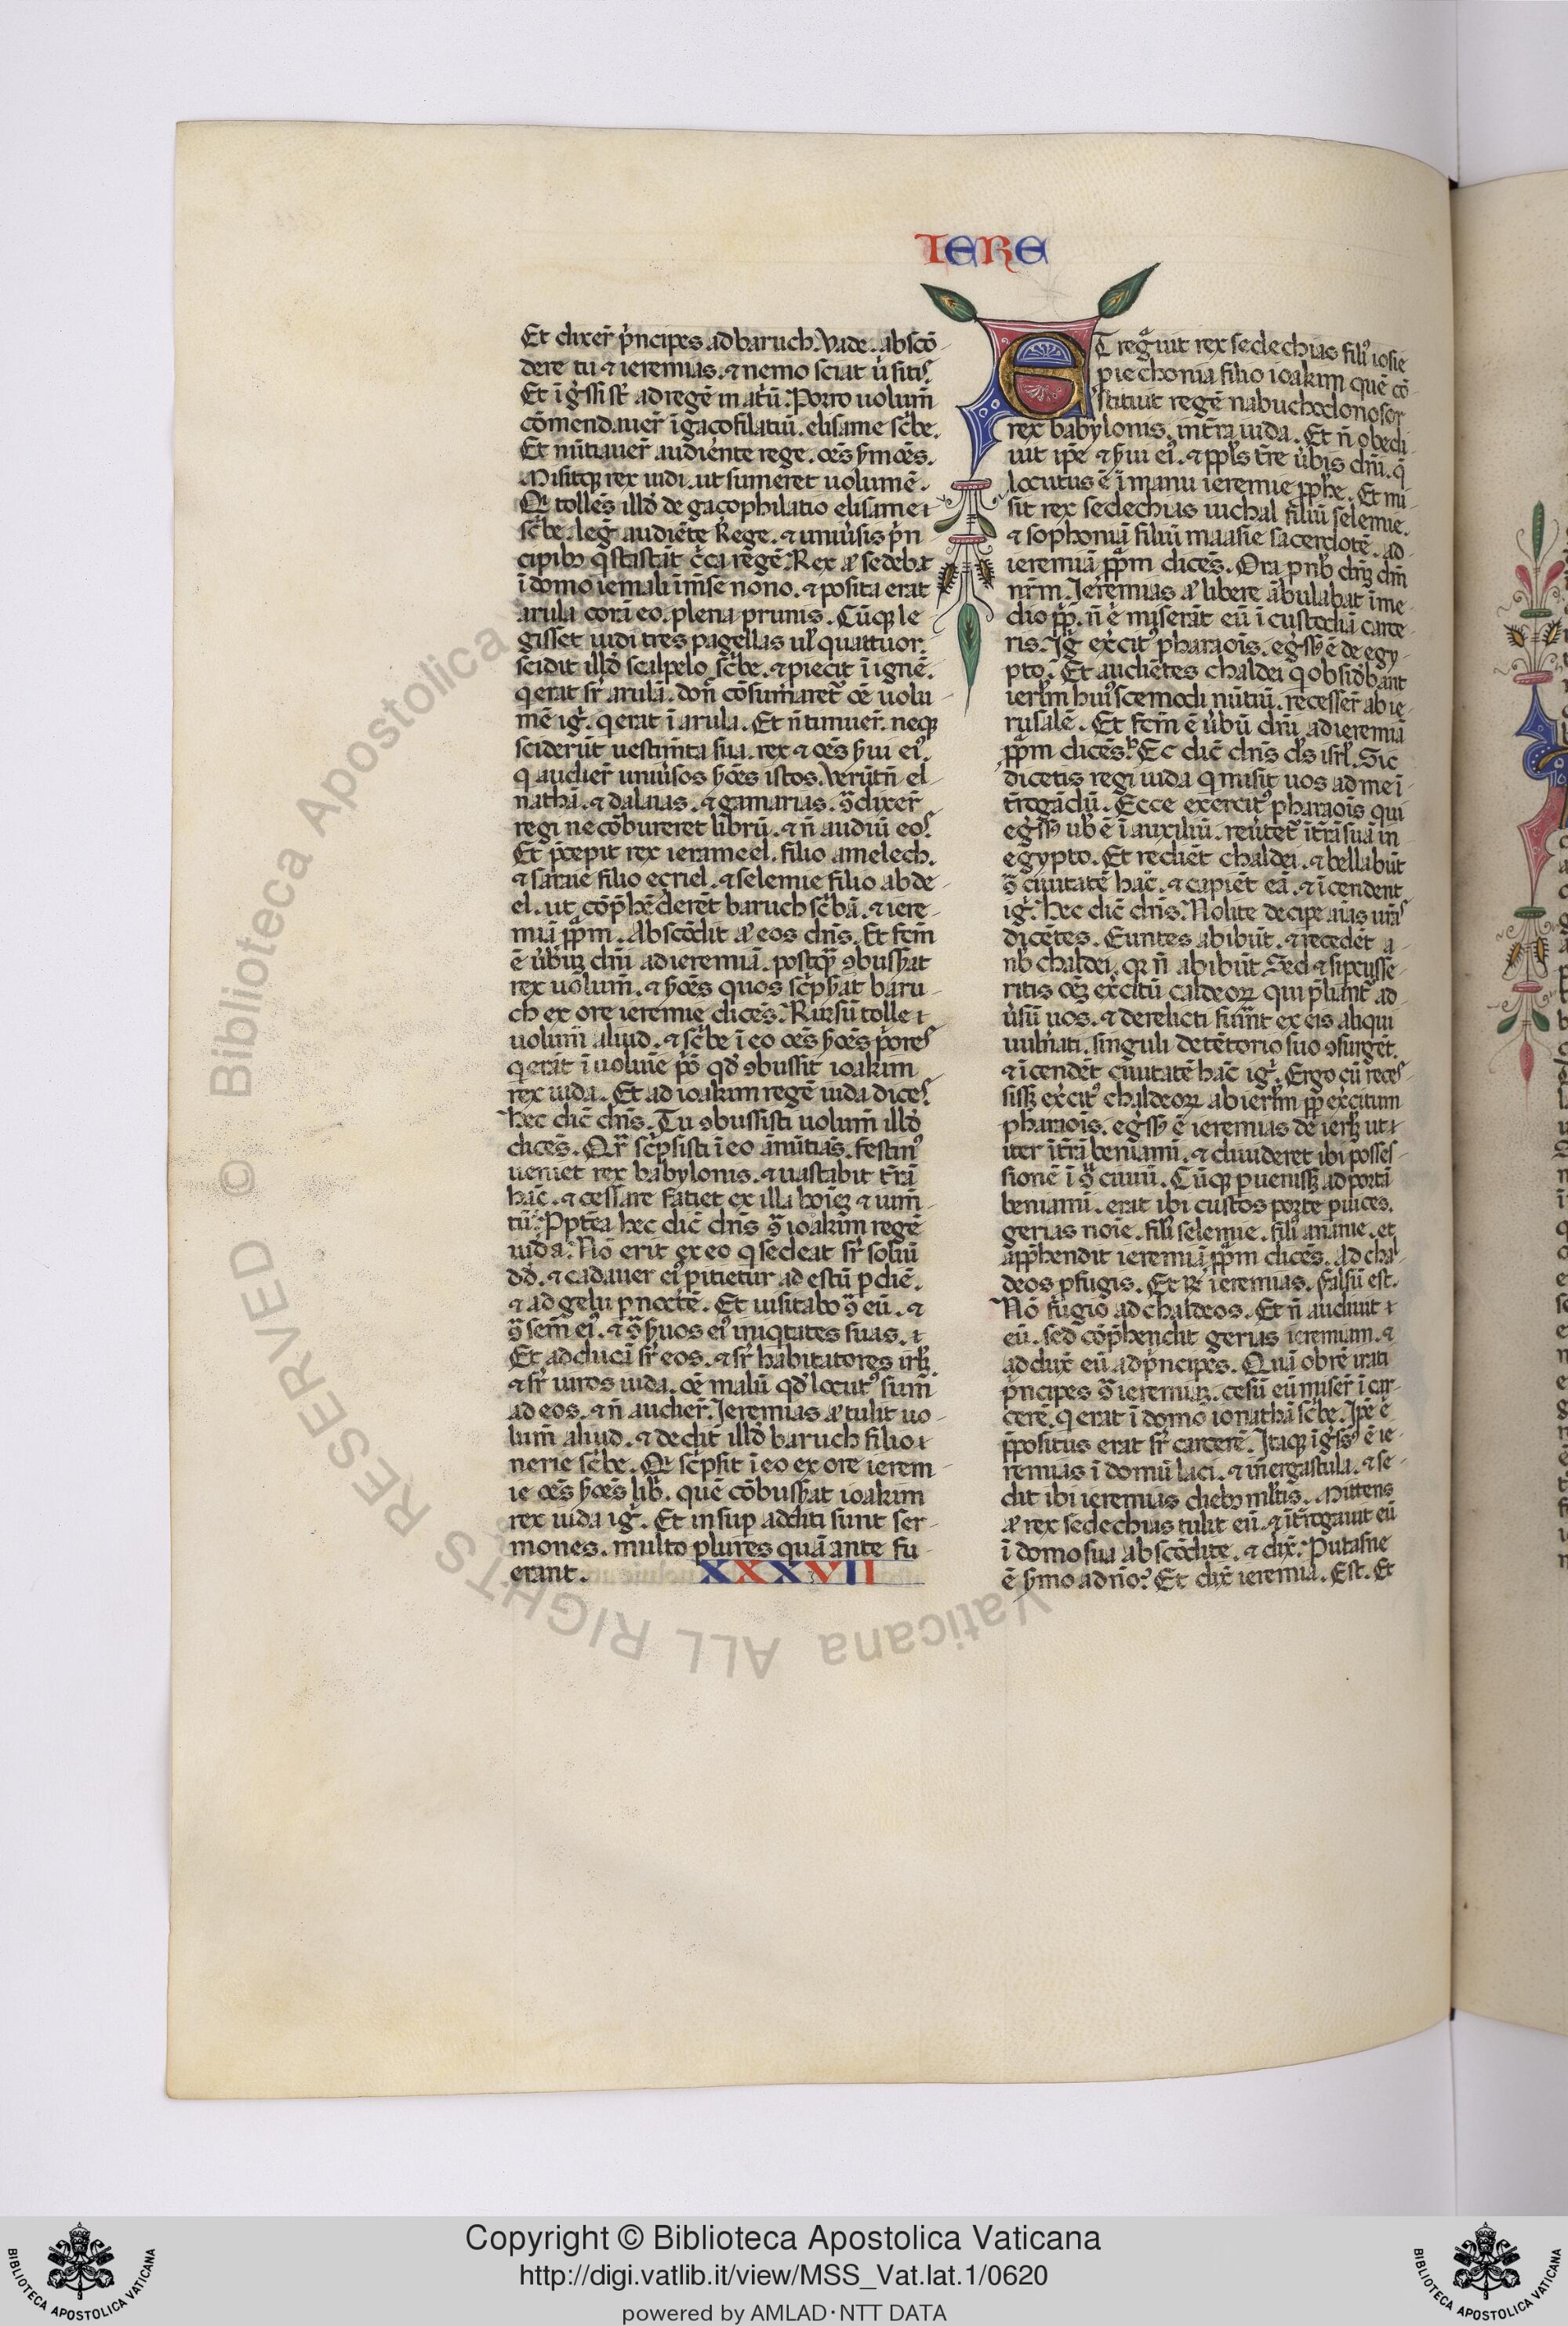 IERE
Et dixer̄ p̄ncipes ad baruch. Vade. abscō
dere tu ⁊ ieremias. ⁊ nemo sciat u̇ sitis.
Et īgr̄ssi st̄ ad regē in atriū. Porro uolum̄
cōmendauer̄ ī gaçofilatiū. elisame sc̄be.
Et nūtiauer̄ audiente rege. oēs ẜmōēs.
Misitq; rex iudi. ut sumeret uolumē.
Qi tollēs illd̄ de gaçophilatio elisame
sc̄be. leḡ audiēte Rege. ⁊ uniu̇sis p̄n
cipibȝ q̄ stastāt c̄ca regē. Rex aū sedebat
ī domo iemali ī mēse nono. ⁊ posita erat
arula corā eo. plena prunis. Cūq; le
gisset iudi tres pagellas ul̄ quattuor.
scidit illd̄ scalpelo sc̄be. ⁊ ꝓiecit ī ignē.
q erat sr̄ arulā. don̄ cōsumaret᷑ oē uolu
mē iḡ. q erat ī arula. Et n̄ timuer̄. neq;
sciderūt uestim̄ta sua. rex ⁊ oēs ẜui ei᷒.
q audier̄ uniu̇sos ẜōēs istos. Verūtn̄ el
nathā. ⁊ dalaias. ⁊ gamarias. ꝯ̄dixer̄
regi ne cōbureret librū. ⁊ n̄ audiū eos.
Et p̄cepit rex ierameel. filio amelech.
⁊ saraie filio eçriel. ⁊ selemie filio abde
el. ut cōp̄hēderēt baruch sc̄bā. ⁊ iere
miā ꝓph̄m. Abscōdit aū eos dn̄s. Et fcm̄
ē u̇bū dn̄i ad ieremiā. postq̄ ꝯbusẜat
rex uolum̄. ⁊ ẜōēs quos sc̄pẜat baru
ch ex ore ieremie dicēs. Rursū tolle
uolum̄ aliud. ⁊ sc̄be ī eo oēs ẜōēs p̄ores
q erāt ī uolum̄e p̄o qd̄ ꝯbussit ioakim
rex iuda. Et ad ioakim regē iuda dices.
Hec dic̄ dn̄s. Tu ꝯbussisti uolum̄ illd̄
dicēs. Qr̄ sc̄psisti ī eo ānūtiās. festin᷒
ueniet rex babylonis. ⁊ uastabit tr̄ā
hāc. ⁊ cessare faciet ex illa hoīeȝ ⁊ ium̄
tū. Ꝓpt̄ea hec dic̄ dn̄s ꝯ̄ ioakim regē
iuda. Nō erit ex eo q sedeat sr̄ soliū
dd̄. ⁊ cadauer ei᷒ ꝓitietur ad estū ꝑ diē.
⁊ ad gelu ꝑ noctē. Et uisitabo ꝯ̄ eū. ⁊
ꝯ̄ sem̄ ei᷒. ⁊ ꝯ̄ ẜuos ei᷒ iniqtates suas.
Et adducā sr̄ eos. ⁊ sr̄ habitatores irlȝ.
⁊ sr̄ uiros iuda. oē malū qd̄ locut᷒ sum̄
ad eos. ⁊ n̄ audier̄. Ieremias aū tulit uo
lum̄ aliud. ⁊ dedit illd̄ baruch filio
nerie sc̄be. Qi sc̄psit ī eo ex ore ierem
ie oēs ẜōēs lib̄. quē cōbusẜat ioakim
rex iuda iḡ. Et insuꝑ additi sunt ser
mones. multo plures quā ante fu
erant. XXXVII
ET reḡuit rex sedechias fili᷒ iosie
ꝓ iechonia filio ioakim quē cō
stituit regē nabuchodonosor
rex babylonis. in tr̄a iuda. Et n̄ obedi
uit ip̄e ⁊ ẜui ei᷒. ⁊ ppl̄s tr̄e u̇bis dn̄i. q̄
locutus ē ī manu ieremie ꝓph̄e. Et mi
sit rex sedechias iuchal filiū selemie.
⁊ sophoniā filiū maasie sacerdotē. ad
ieremiā ꝓph̄m dicēs. Ora ꝓ nb̄ dn̄ȝ dn̄ı̄
nr̄m. Ieremias aū libere ābulabat ī me
dio pp̄. n̄ .n. miserāt eū ī custodiā carce
ris. Iḡ exercit᷒ pharaoīs. eḡss᷒ ē de egy
pto. Et audiētes chaldei q obsidb̄ant
ierlm̄ huiꝰscemodi nūtiū. recesser̄ ab ie
rusalē. Et fcm̄ ē u̇bū dn̄i ad ieremiā
ꝓph̄m dicēs. Hec dic̄ dn̄s ds̄ isrl̄. Sic
dicetis regi iuda q misit uos ad me ī
tr̄ogādū. Ecce exercit᷒ pharaoīs qui
eḡss᷒ ub̄ ē ī auxiliū. reu̇tet᷑ ī tr̄ā suā in
egypto. Et rediēt chaldei. ⁊ bellabūt
ꝯ̄ ciuitatē hāc. ⁊ capiēt eā. ⁊ īcendent
iḡ. Hec dic̄ dn̄s. Nolite decipe aīas ur̄as
dicētes. Euntes abibūt. ⁊ recedēt a
nb̄ chaldei. qr n̄ abibūt. Sed ⁊ si ꝑcusse
ritis oēȝ exercitū caldeoꝝ qui p̄liant᷑ ad
u̇sū uos. ⁊ derelicti fuer̄t ex eis aliqui
uulnati. singuli de tētorio suo ꝯsurgēt.
⁊ īcendēt ciuitatē hāc iḡ. Ergo cū reces
sissȝ exercit᷒ chaldeoꝝ ab ierlm̄ ꝓp̄ exercitum
pharaoīs. eḡss᷒ ē ieremias de ierlȝ ut
iret ī tr̄ā beniami. ⁊ diuideret ibi posses
sionē ī ꝯ̄ ciuiū. Cūq; ꝑuenissȝ ad portā
beniami. erat ibi custos porte ꝑ uices.
gerias noīe. fili᷒ selemie. fili᷒ ananie. et
app̄hendit ieremiā ꝓph̄m dicēs. Ad chal
deos ꝓfugis. Et Rn̄ ieremias. Falsū est.
Nō fugio ad chaldeos. Et n̄ audiuit
eū. sed cōp̄hendit gerias ieremiam. ⁊
adduxt̄ eū ad p̄ncipes. Quā obrē irati
p̄ncipes ꝯ̄ ieremiaȝ. cesū eū miser̄ ī car
cerē. q erat ī domo ionathā sc̄be. Ip̄e .n.
p̄positus erat sr̄ carcerē. Itaq; īgr̄ss᷒ ē ie
remias ī domū laci. ⁊ in ergastula. ⁊ se
dit ibi ieremias diebȝ ml̄tis. Mittens
aū rex sedechias tulit eū. ⁊ īt̄rogauit eū
ī domo sua abscōdite. ⁊ dix̄. Putasne
ē ẜmo a dn̄o? Et dix̄ ieremia. Est. Et
© Biblioteca Apostolica Vaticana ALL RIGHTS RESERVED
Copyright © Biblioteca Apostolica Vaticana
http://digi.vatlib.it/view/MSS_Vat.lat.1/0620
powered by AMLAD·NTT DATA
BIBLIOTECA APOSTOLICA VATICANA
BIBLIOTECA APOSTOLICA VATICANA